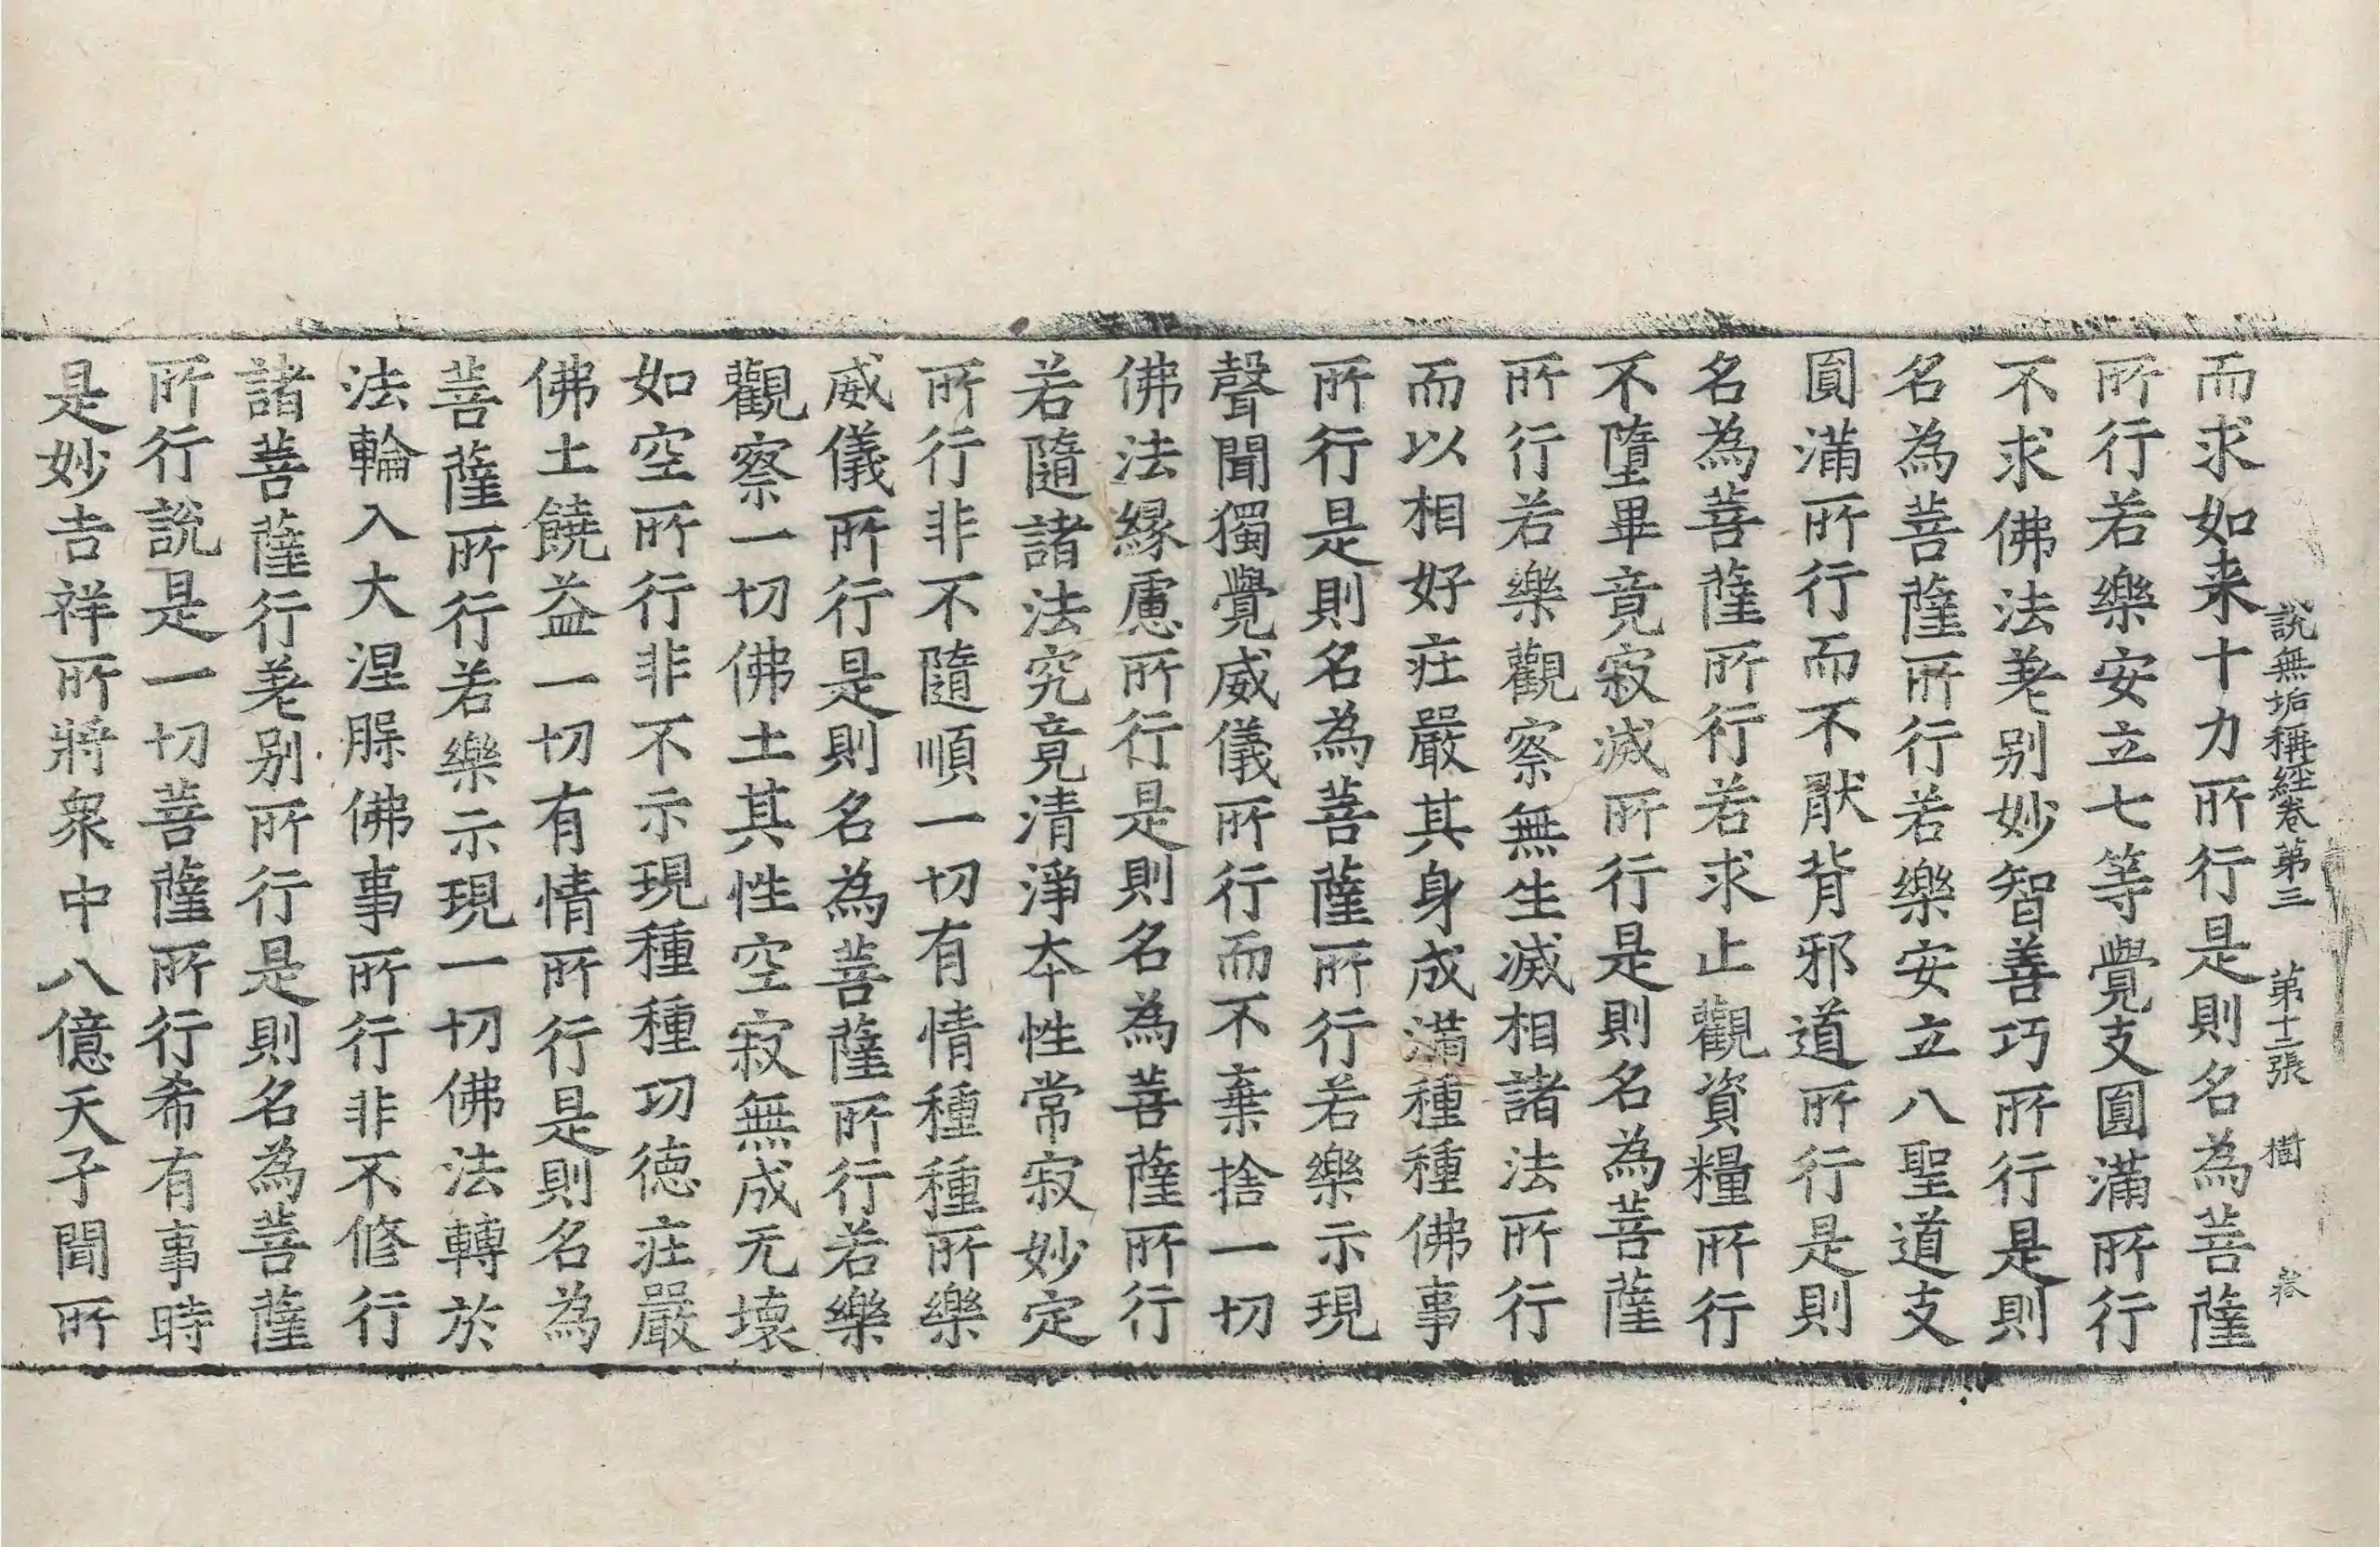 說無垢稱經卷第三 第十二張 樹
而求如来十力所行是則名為菩薩
所行若樂安立七等覺支圓滿所行
不求佛法差别妙智善巧所行是則
名為菩薩所行若樂安立八聖道支
圓滿所行而不猒背邪道所行是則
名為菩薩所行若求止觀資糧所行
不墮畢竟寂滅所行是則名為菩薩
所行若樂觀察無生滅相諸法所行
而以相好莊嚴其身成滿種種佛事
所行是則名為菩薩所行若樂示現
聲聞獨覺威儀所行而不棄捨一切
佛法緣慮所行是則名為菩薩所行
若隨諸法究竟清淨本性常寂妙定
所行非不隨順一切有情種種所樂
威儀所行是則名為菩薩所行若樂
觀察一切佛土其性空寂無成无壞
如空所行非不示現種種功德莊嚴
佛土饒益一切有情所行是則名為
菩薩所行若樂示現一切佛法轉於
法輪入大涅槃佛事所行非不修行
諸菩薩行差别所行是則名為菩薩
所行說是一切菩薩所行希有事時
是妙吉祥所將衆中八億天子聞所